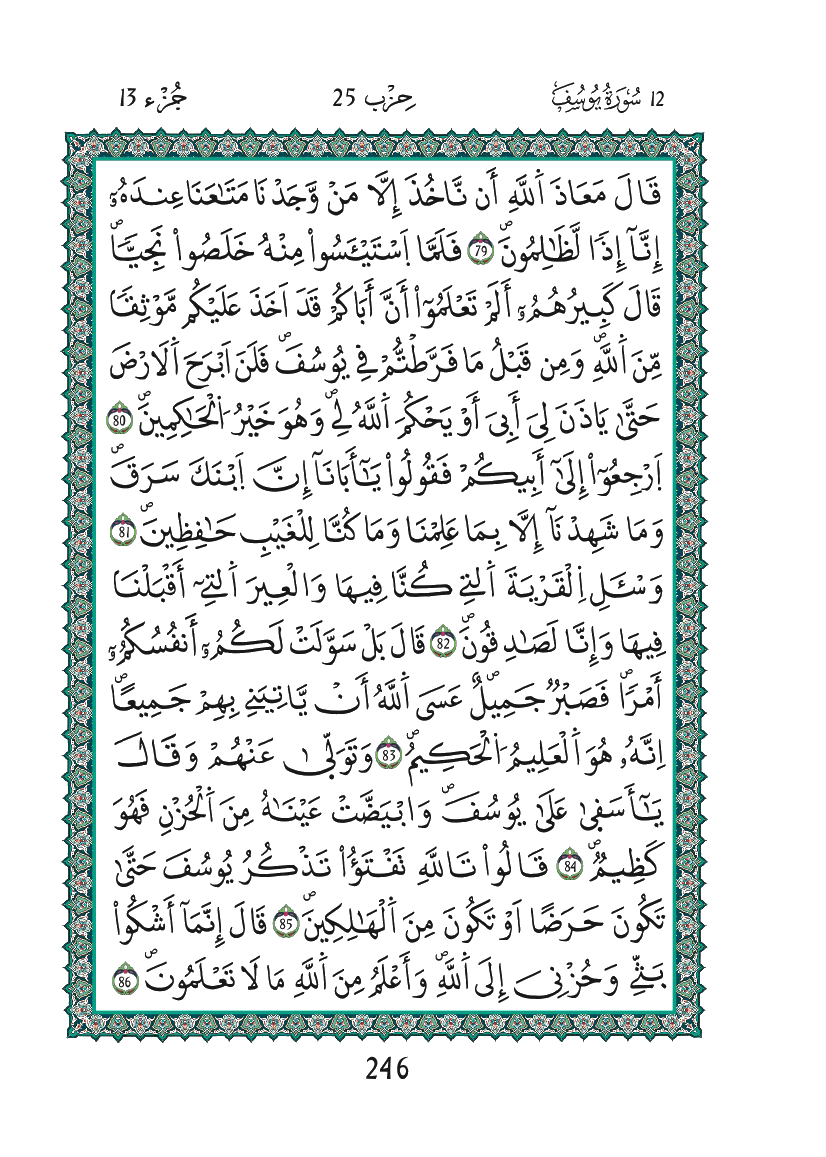 12 سُورَةُ يُوسُفَ حِزْب 25 جُزْء 13
قَالَ مَعَاذَ اَ۬للَّهِ أَن نَّاخُذَ إِلَّا مَنْ وَّجَدْنَا مَتَٰعَنَا عِندَهُۥٓ
إِنَّآ إِذٗا لَّظَٰلِمُونَۖ 79 فَلَمَّا اَ۪سْتَيْـَٔسُواْ مِنْهُ خَلَصُواْ نَجِيّٗاۖ
قَالَ كَبِيرُهُمُۥٓ أَلَمْ تَعْلَمُوٓاْ أَنَّ أَبَاكُمْ قَدَ اَخَذَ عَلَيْكُم مَّوْثِقٗا
مِّنَ اَ۬للَّهِۖ وَمِن قَبْلُ مَا فَرَّطتُّمْ فِے يُوسُفَۖ فَلَنَ اَبْرَحَ اَ۬لَارْضَ
حَتَّىٰ يَاذَنَ لِيَ أَبِيَ أَوْ يَحْكُمَ اَ۬للَّهُ لِےۖ وَهُوَ خَيْرُ اُ۬لْحَٰكِمِينَۖ 80
اَ۪رْجِعُوٓاْ إِلَىٰٓ أَبِيكُمْ فَقُولُواْ يَٰٓأَبَانَآ إِنَّ اَ۪بْنَكَ سَرَقَۖ
وَمَا شَهِدْنَآ إِلَّا بِمَا عَلِمْنَا وَمَا كُنَّا لِلْغَيْبِ حَٰفِظِينَۖ 81
وَسْـَٔلِ اِ۬لْقَرْيَةَ اَ۬لتِے كُنَّا فِيهَا وَالْعِيرَ اَ۬لتِےٓ أَقْبَلْنَا
فِيهَا وَإِنَّا لَصَٰدِقُونَۖ 82 قَالَ بَلْ سَوَّلَتْ لَكُمُۥٓ أَنفُسُكُمُۥٓ
أَمْرٗاۖ فَصَبْرٞ جَمِيلٌۖ عَسَى اَ۬للَّهُ أَنْ يَّاتِيَنِے بِهِمْ جَمِيعًاۖ
اِنَّهُۥ هُوَ اَ۬لْعَلِيمُ اُ۬لْحَكِيمُۖ 83 وَتَوَلَّىٰ عَنْهُمْ وَقَالَ
يَٰٓأَسَفىٰ عَلَىٰ يُوسُفَۖ وَابْيَضَّتْ عَيْنَٰهُ مِنَ اَ۬لْحُزْنِ فَهُوَ
كَظِيمٞۖ 84 قَالُواْ تَاللَّهِ تَفْتَؤُاْ تَذْكُرُ يُوسُفَ حَتَّىٰ
تَكُونَ حَرَضًا اَوْ تَكُونَ مِنَ اَ۬لْهَٰلِكِينَۖ 85 قَالَ إِنَّمَآ أَشْكُواْ
بَثِّے وَحُزْنِيَ إِلَى اَ۬للَّهِۖ وَأَعْلَمُ مِنَ اَ۬للَّهِ مَا لَا تَعْلَمُونَۖ 86
246